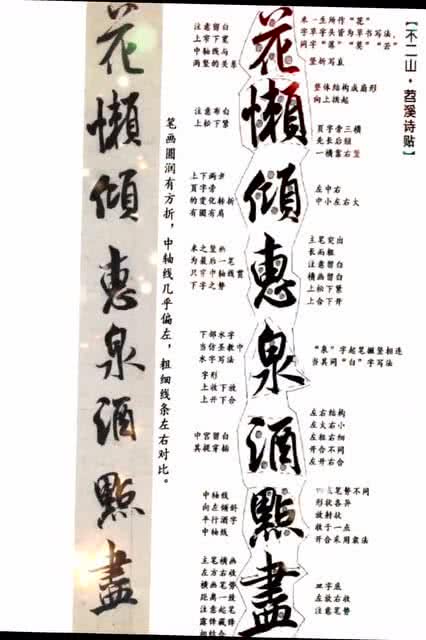 【不二山·苕溪诗贴】
花懶傾惠泉酒點盡
花懶傾惠泉酒點盡
笔画圆润有方折，中轴线几乎偏左，粗细线条左右对比。
注意留白
上窄下宽
中轴线与
两竖的关系
米一生所作“花”
字草字头皆为草书写法，
同字“落”“莫”“云”
竖折写直
整体结构成扇形
向上拱起
注意布白
上松下紧
頁字旁三横
先长后短
一横靠右竖
上下两步
頁字旁
的变化转折
有圆有肩
左中右
中小左右大
主笔突出
长而粗
注意留白
横画留白
上松下紧
上合下开
米之竖画
为最后一笔
只穿中轴线贯
下字之势
下部水字
当仿圣教中
水字写法
字形
上收下放
上开下合
“泉”字起笔撇竖相连
当其同“白”字写法
中宫留白
其提穿插
左右结构
左大右小
左粗右细
开合不同
左开右合
中轴线
向左倾斜
平行酒字
中轴线
点笔势不同
形状各异
放射状
收于一点
开合采用裹法
主笔横画
左方右收
横画笔势
距离一致
注意起笔
露锋藏锋
相结合
皿字底
左放右收
注意笔势